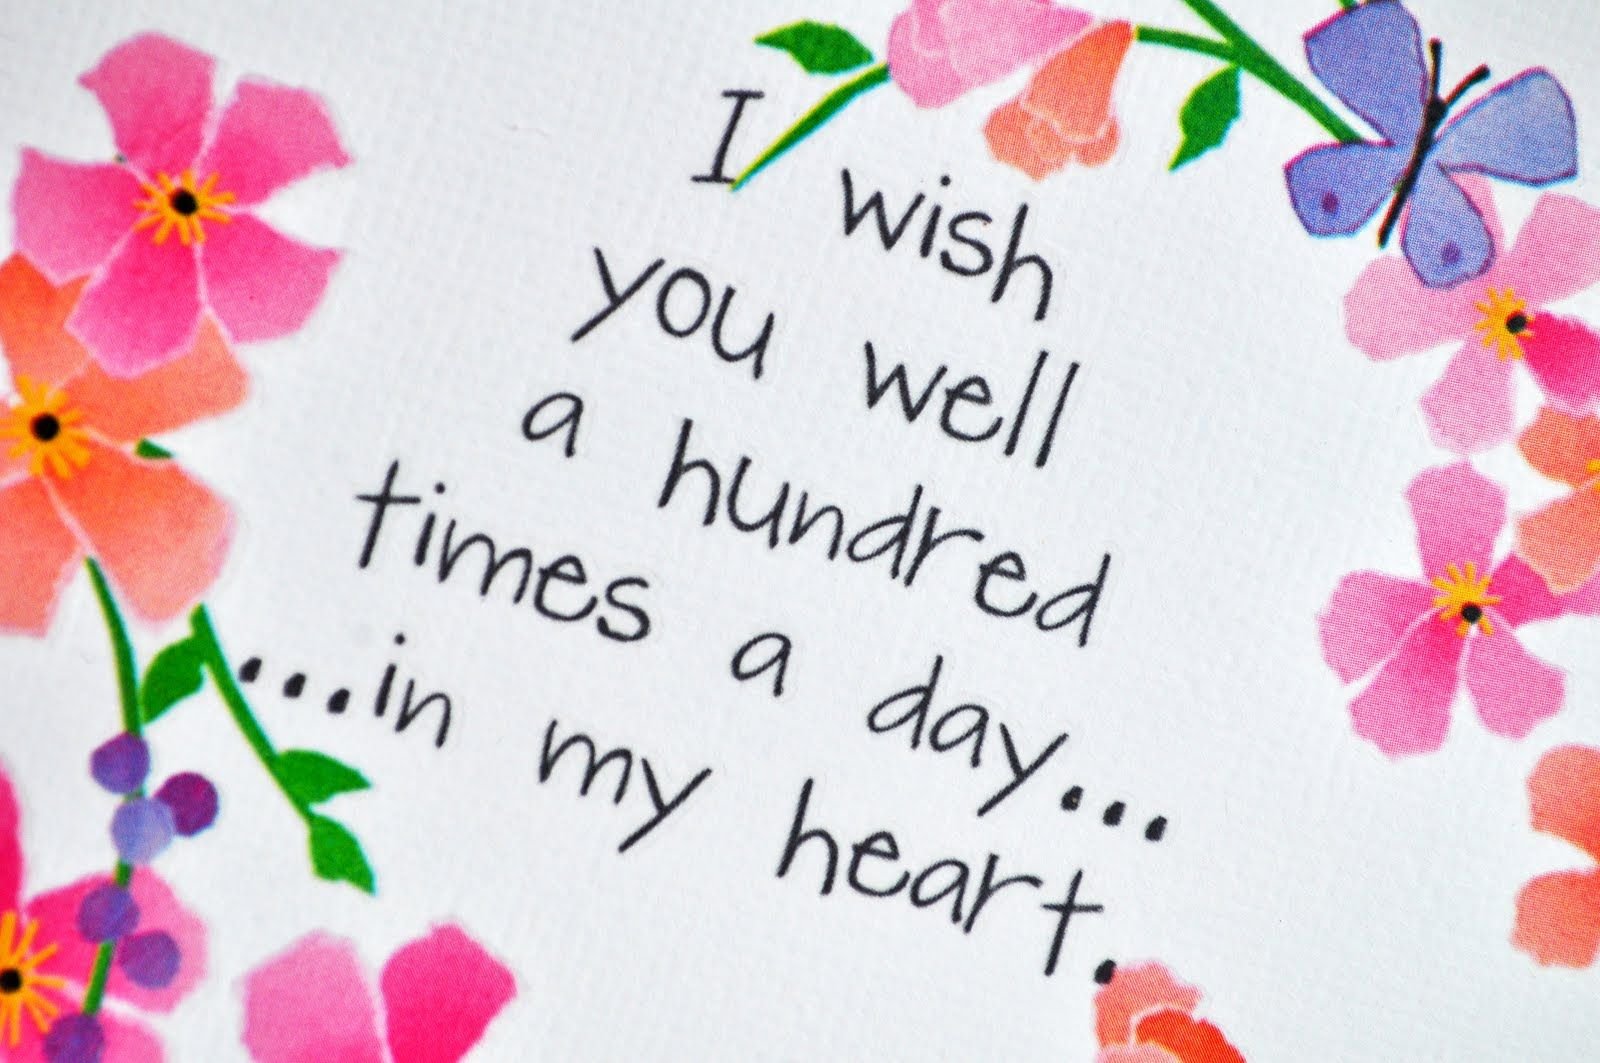 I wish
you well
a hundred
times a day...
...in my heart.